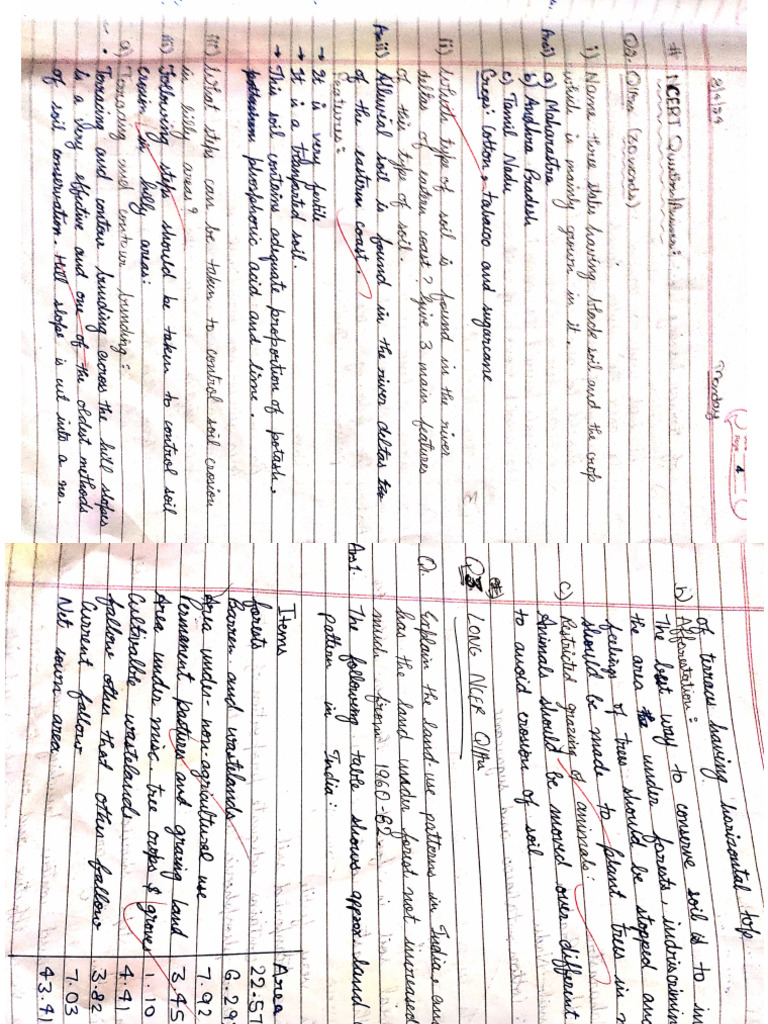 8/4/24
Monday
Page 4
# NCERT Question/Answer:
Q2. Q/Ans (30 words)
i) Name three states having black soil and the crop
which is mainly grown in it.
Ans i) a) Maharastra
b) Andhra Pradesh
c) Tamil Nadu
Crops: Cotton, tabacoo and sugarcane
ii) Which type of soil is found in the river
deltas of eastern coast? Give 3 main features
of this type of soil.
Ans ii) Alluvial soil is found in the river deltas
of the eastern coast.
Features:
→ It is very fertile
→ It is a transported soil.
→ This soil contains adequate proportion of potash,
phosphoric acid and lime.
iii) What steps can be taken to control soil erosion
in hilly areas?
iii) Following steps should be taken to control soil
erosion in hilly areas:
a) Terracing and contour bunding:
Terracing and contour bunding across the hill slopes
is a very effective and one of the oldest methods
of soil conservation. Hill slope is cut into a no.
of terraces having horizontal top
b) Afforestation:
The best way to conserve soil is to in
the area under forests, indiscrimin
fellings of trees should be stopped an
should be made to plant trees in
c) Restricted grazing of animals:
Animals should be moved over different
to avoid erosion of soil.
LONG NCER Q/Ans
Q. Explain the land use patterns in India, an
has the land under forest not increased
much from 1960-62.
Ans 1. The following table shows approx. land
pattern in India:
Items Area
forests 22.57
Barren and wastelands 6.29
Area under non-agricultural use 7.92
Permanent pastures and grazing land 3.45
Area under misc. tree crops & groves 1.10
Culturable wastelands 4.41
fallow other that other fallow 3.82
Current fallow 7.03
Net sown area 43.41